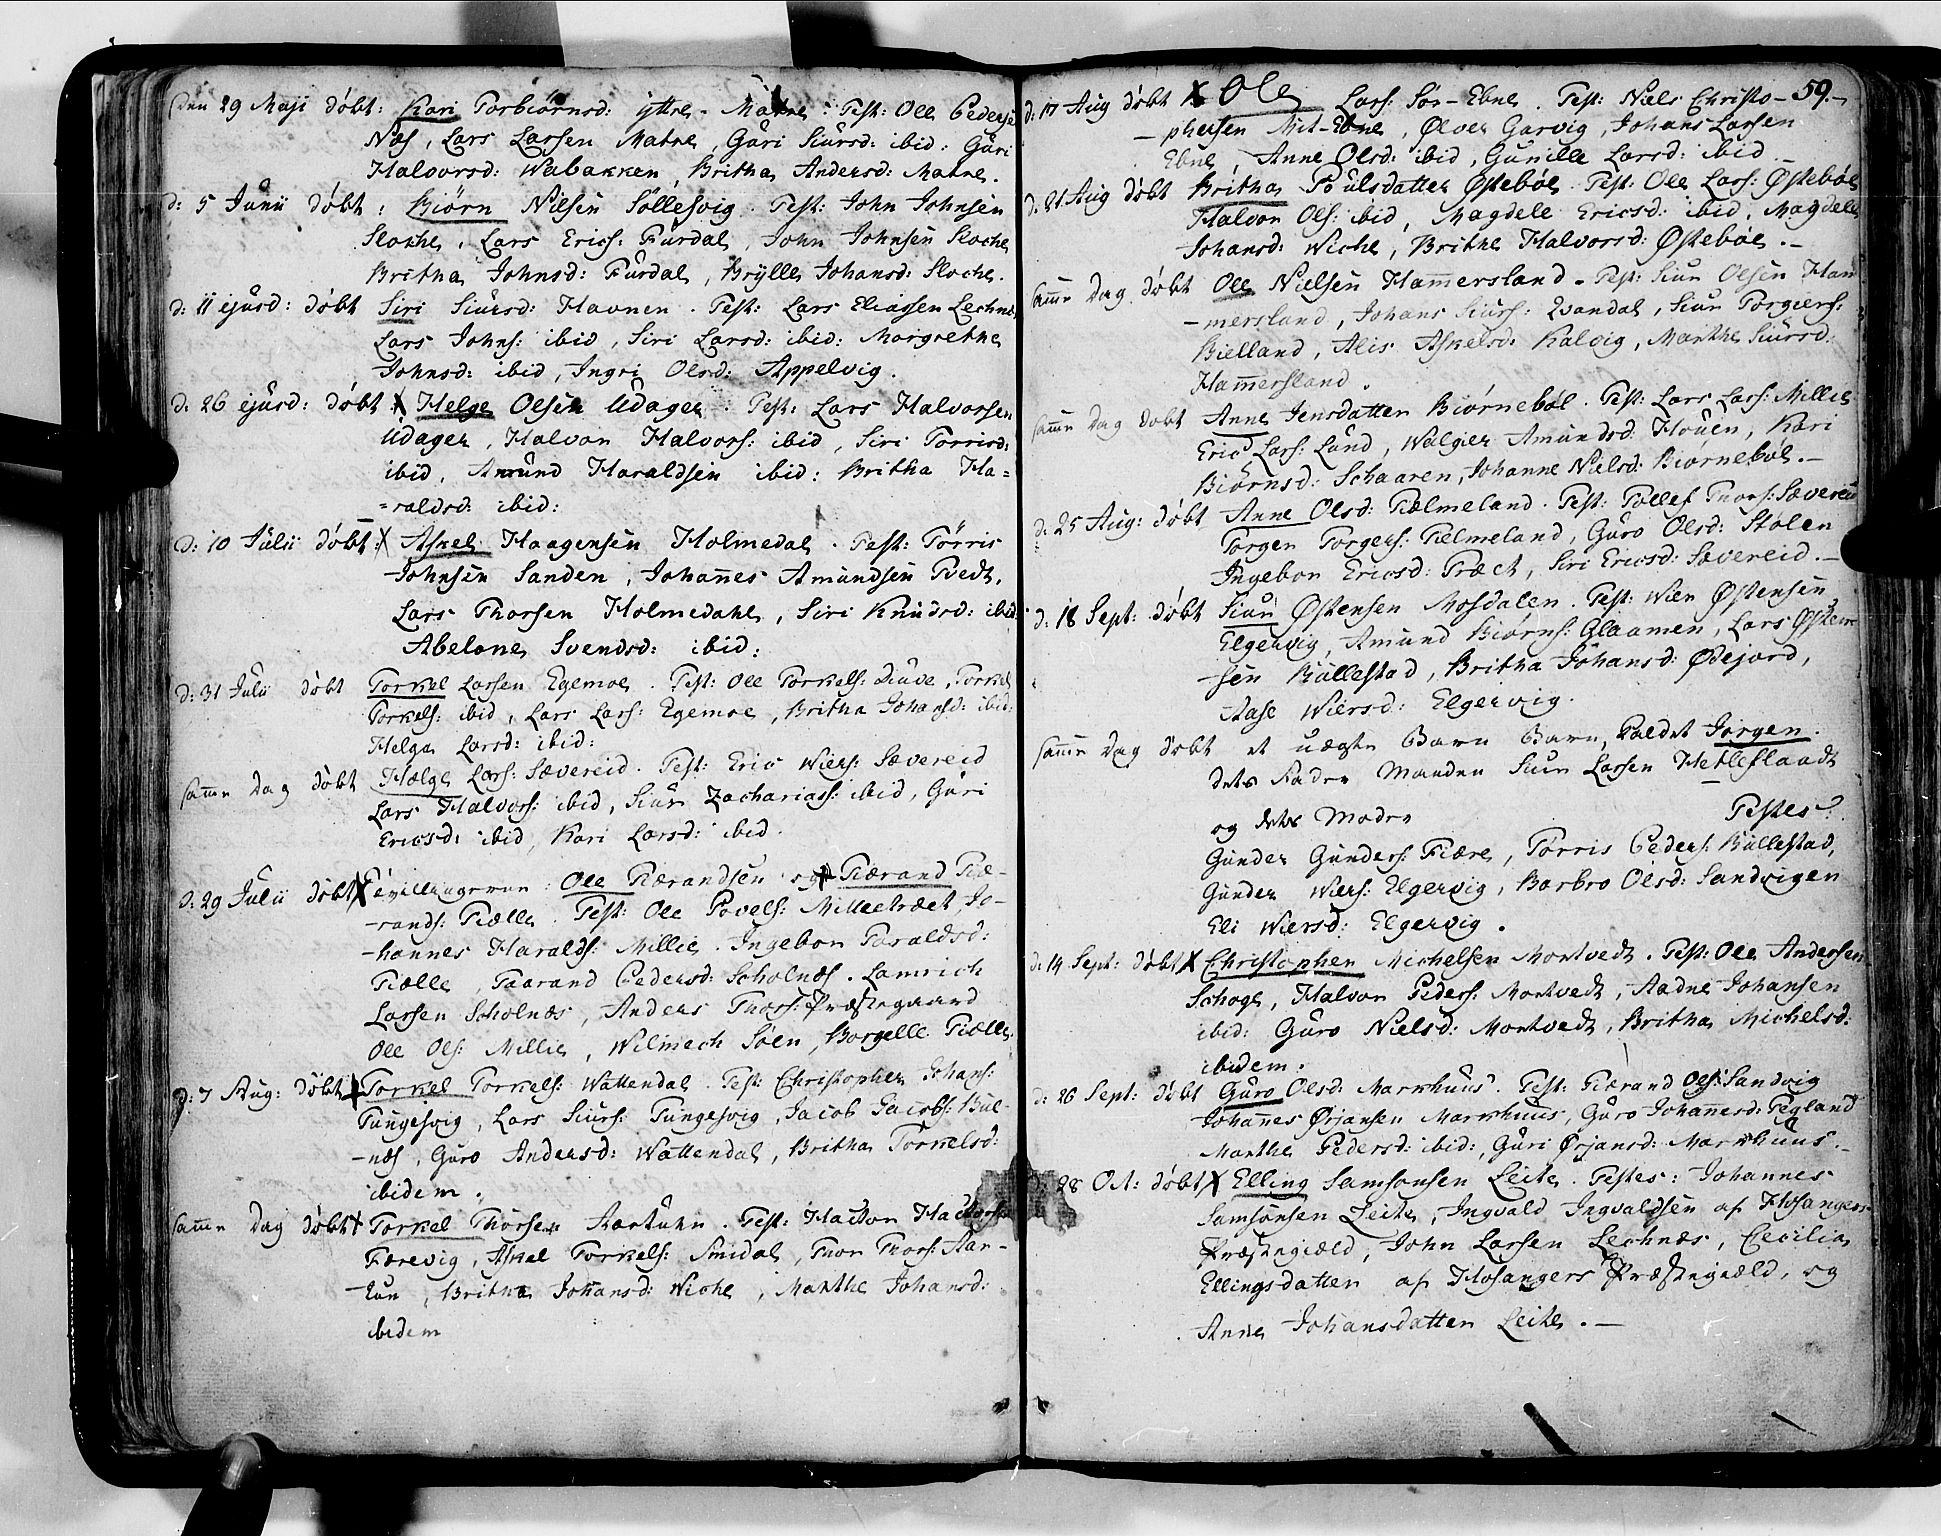 den 29 Maji døbt: Kari Torbiørnsd: ÿttre-Matre. Test: Ole Peders:
Næs, Lars Larsen Matre, Guri Siursd: ibid: Guri
Halvorsd: Wabakken, Britha Andersd: Matre.
d: 5 Junii døbt: Biørn Nilsen Søllesvig. Test: John Johnsen
Slokke, Lars Erics: Furdal, John Johnsen Sloche
Britha Johnsd: Furdal, Brylle Johansd: Sloche.
d: 11 ejusd: døbt Siri Siursd: Havnen. Test: Lars Eliassen Lechnæs
Lars Johns: ibid, Siri Larsd: ibid: Margrethe
Johnsd: ibid, Ingri Olsd: Appelvig.
d: 26 ejusd: døbt: Helge Olsen Udager. Test: Lars Halvorsen
Udager, Halvor Halvors: ibid, Siri Torrisd:
ibid, Amund Haraldsen ibid: Britha Ha=
=raldsd: ibid:
d: 10 Julii døbt: Askel Haagensen Holmedal. Test: Tørris
Johnsen Sanden, Johannes Amundsen Tvedt,
Lars Thorsen Holmedahl, Siri Knudsd: ibid:
Abelone Svendsd: ibid:
d: 31 Julii døbt Torkel Larsen Egemoe. Test: Ole Torkels: Diuve, Torkel
Torkels: ibid, Lars Lars: Egemoe, Britha Johansd: ibid:
Helga Larsd: ibid:
samme Dag døbt Hælge Lars: Sævereid. Test: Eric Wiers: Sævereid
Lars Halvors: ibid, Siur Zacharias: ibid, Guri
Ericsd: ibid, Kari Larsd: ibid.
d: 29 Julii døbt Tvillingerne: Ole Tiærandsen og Tiærand Tiæ-
-rands: Tiælle. Test: Ole Povels: Milletræet, Jo-
-hannes Haralds: Millie. Ingebor Taraldsd:
Tiælle, Taarand Pedersd: Scholnæs. Lamrich
Larsen Scholnæs, Anders Thors: Præstegaard
Ole Ols: Millie, Wilmech Søen, Borgelle Tiælle
d: 7 Aug: døbt Torkel Torkels: Wattendal. Test: Christopher Johans:
Tungesvig, Lars Siurs: Tungesvig, Jacob Jacobs: Bul-
-næs, Guro Andersd: Wattendal, Britha Torkelsd:
ibidem.
samme Dag døbt Torkel Thorsen Aartuhn. Test: Hactor Hactors:
Færevig, Askel Torkels: Smidal, Thor Thors: Aar-
-tun, Britha Johansd: Wiche, Marthe Johansd:
ibidem
59.
d: 17 Aug døbt Ole Lars: Sør-Ebne. Test: Niels Christo-
-phersen Mit-Ebne, Ølver Garvig, Johans Larsen
Ebne, Anne Olsd: ibid, Gunille Larsd: ibid.
d: 21 Aug døbt Britha Poulsdatter Østebøe. Test: Ole Lars: Østebøe
Halvor Ols: ibid, Magdele Ericsd: ibid, Magdele
Johansd: Wiche, Brithe Halvorsd: Østebøe.
samme Dag døbt Ole Nielsen Hammersland. Test: Siur Olsen Ham
-mersland, Johans Siurs: Qvandal, Siur Torgiers:
Bielland, Alis Askelsd: Kalvig, Marthe Siursd:
Hammersland.
samme Dag døbt Anne Jensdatter Biørnebøl. Test: Lars Lars: Millie
Eric Lars: Lund, Walgier Amundsd: Houen, Kari
Biørnsd: Schaaren, Johanne Nielsd: Biørnebøl.
d: 25 Aug: døbt Anne Olsd: Tielmeland. Test: Tollef Thors: Sævereid
Torger Torgers: Tielmeland, Guro Olsd: Stølen
Ingebor Ericsd: Træet, Siri Ericsd: Sævereid.
d: 18 Sept: døbt Siur Østensen Mosdalen. Test: Wier Østensen
Elgervig, Amund Biørns: Glaamen, Lars Østen-
-sen Bullestad, Britha Johansd: Ødejord,
Aase Wiersd: Elgervig.
samme Dag døbt et uægte Barn Barn, kaldet Jørgen.
dets Fader Manden Siur Larsen Hetleslaadt
og dets Moder Testes:
Gunder Gunders: Fiære, Tørris Peders: Bullestad,
Gunder Wiers: Elgervig, Barbro Olsd: Sandvigen
Eli Wiersd: Elgervig.
d: 14 Sept: døbt Christopher Michelsen Mortvedt. Test: Ole Andersen
Schoge, Halvor Peders: Mortvedt, Aadne Johansen
ibid: Guro Nielsd: Mortvedt, Britha Michelsd:
ibidem.
d: 26 Sept: døbt Guro Olsd: Markhuus. Test: Tiærand Ols: Sandvig
Johannes Ørjansen Markhuus, Guro Johannesd: Tegland
Marthe Pedersd: ibid:, Guri Ørjansd: Markhuus.
d: 28 Oct: døbt Elling Samsonsen Leite. Testes: Johannes
Samsonsen Leite, Ingvald Ingvaldsen af Hosangers
Præstegiæld, John Larsen Lechnæs, Cecilia
Ellingsdatter af Hosangers Præstegiæld, og
Anne Johansdatter Leite.